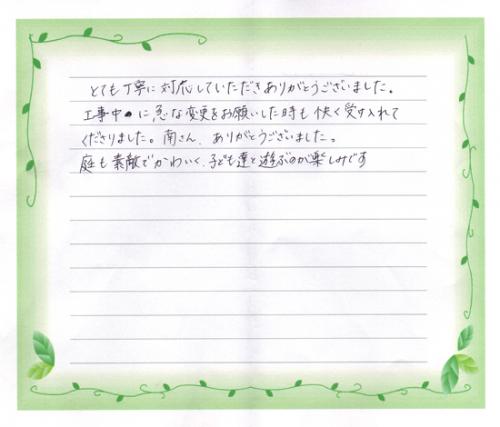 とても丁寧に対応していただきありがとうございました。
工事中に急な変更をお願いした時も快く受け入れて
くださりました。南さん、ありがとうございました。
庭も素敵でかわいく、子ども達と遊ぶのが楽しみです